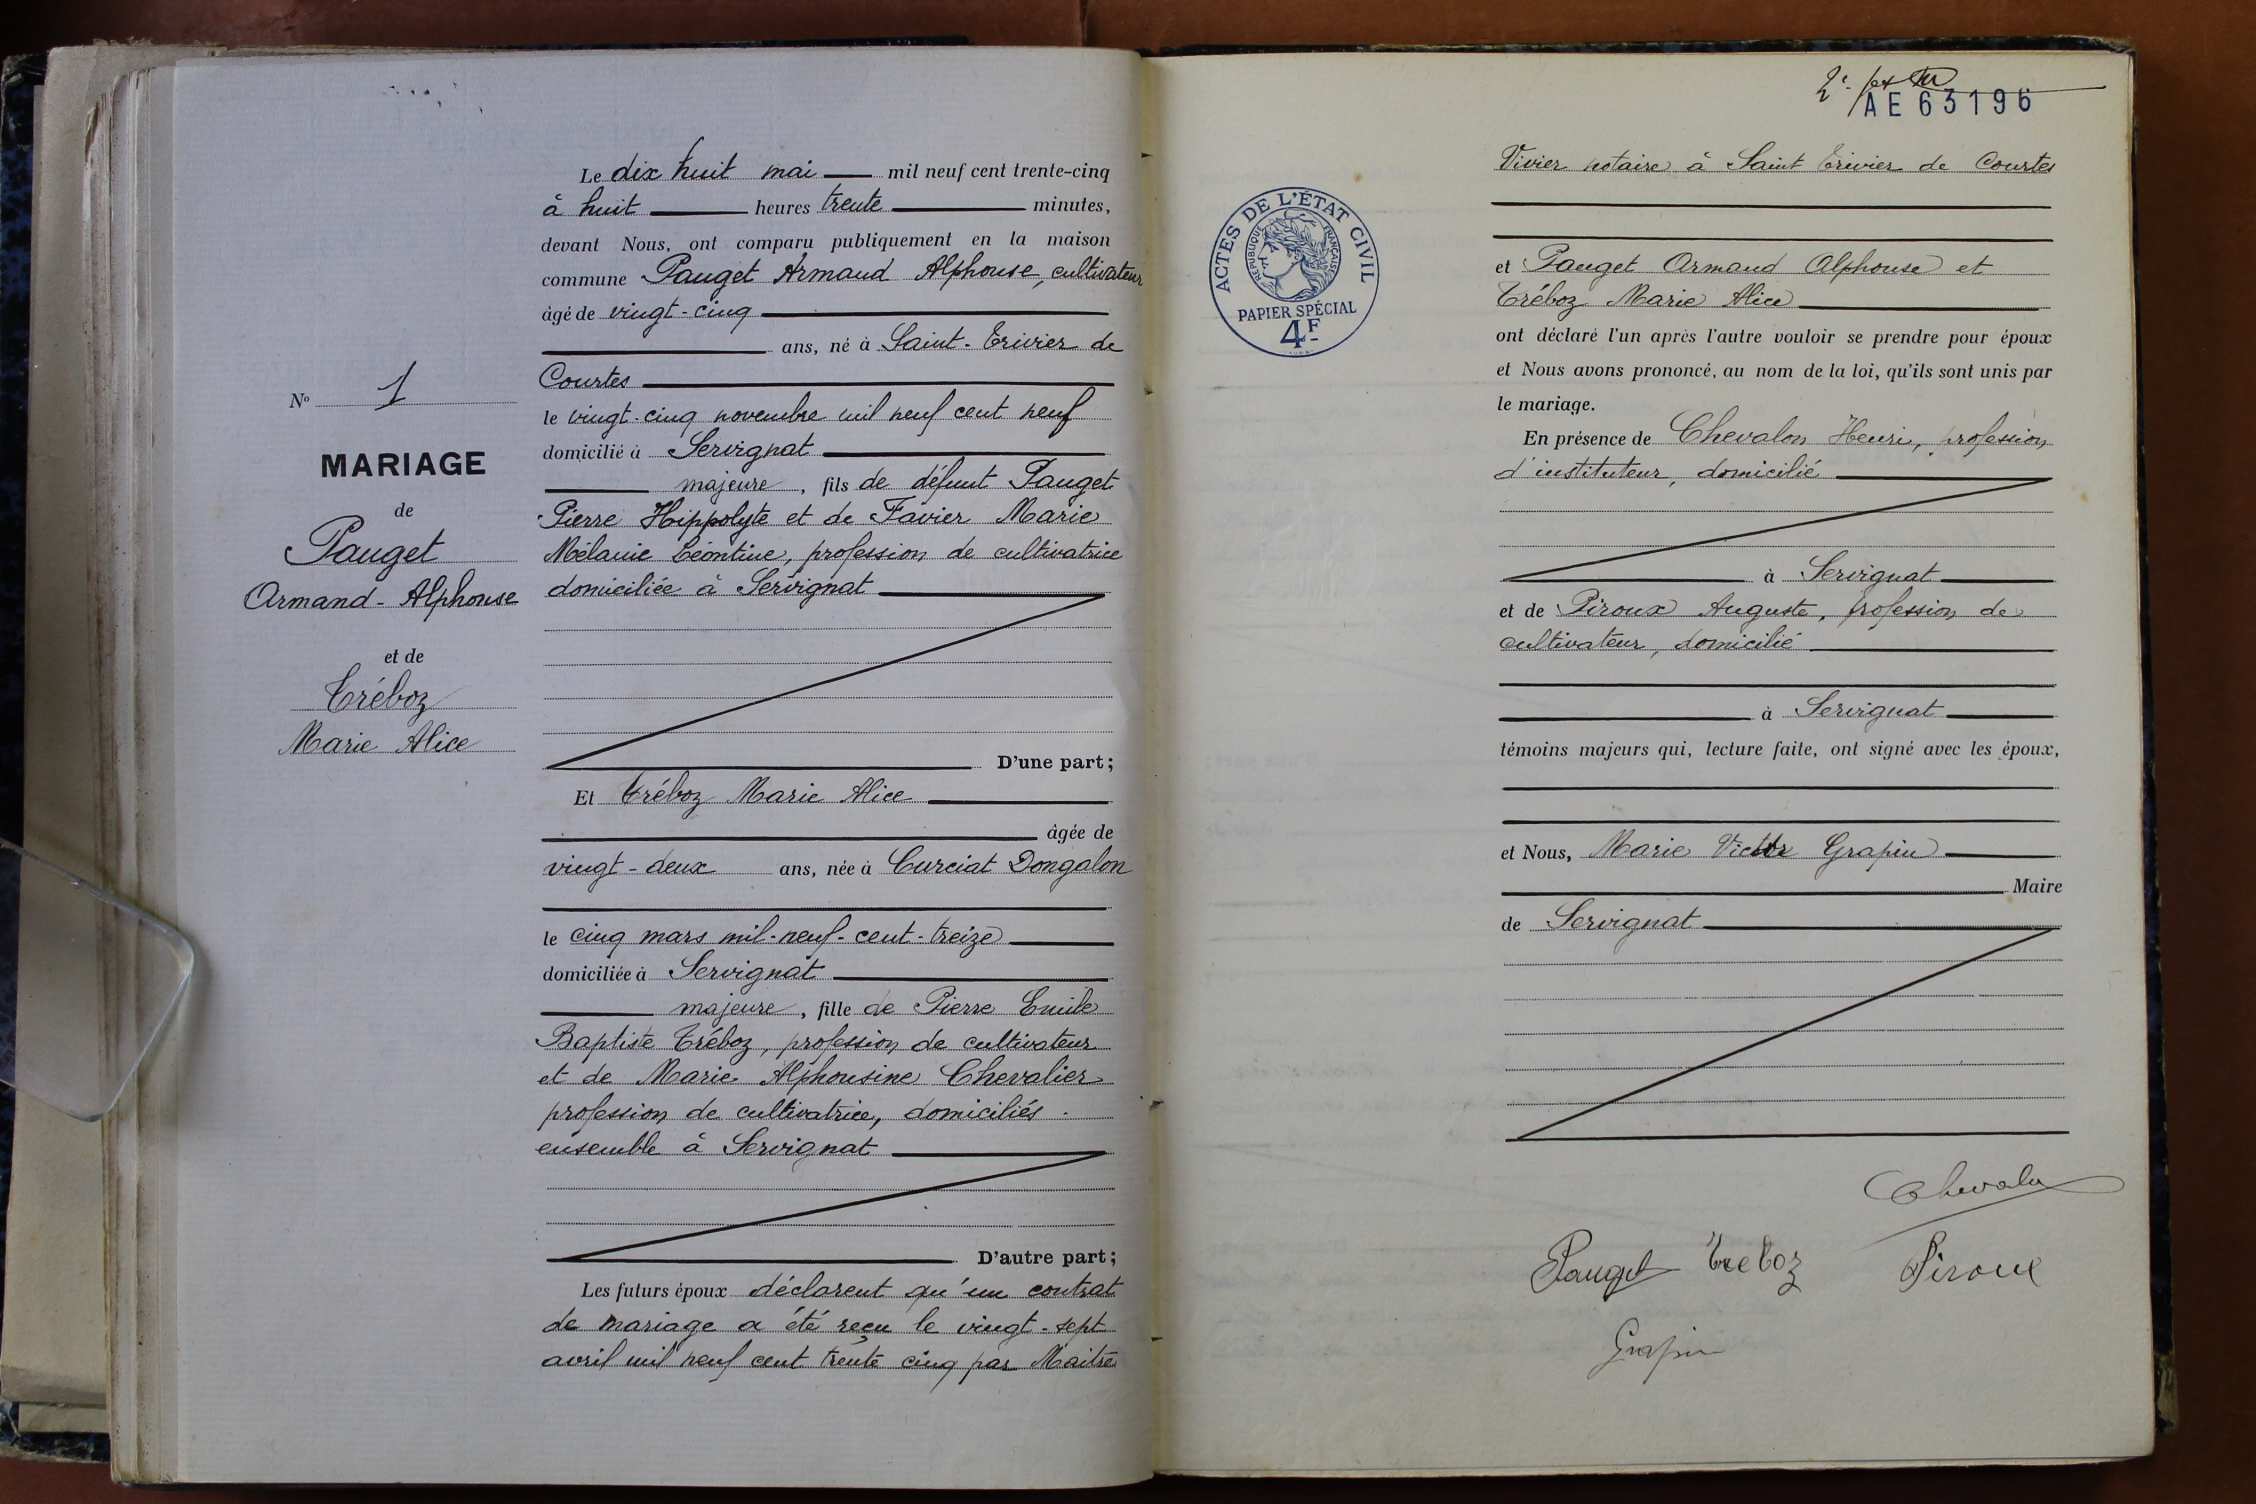 Le dix huit mai mil neuf cent trente-cinq
à huit heures trente minutes,
devant Nous, ont comparu publiquement en la maison
commune Pauget Armand Alphonse, cultivateur
âgé de vingt-cinq
ans, né à Saint-Trivier de
Courtes
le vingt-cinq novembre mil neuf cent neuf
domicilié à Servignat
majeure, fils de défunt Pauget
Pierre Hippolyte et de Favier Marie
Mélanie Léontine, profession de cultivatrice
domiciliée à Servignat
D'une part;
Et Tréboz Marie Alice
âgée de
vingt-deux ans, née à Curciat Dongalon
le cinq mars mil-neuf-cent-treize
domiciliée à Servignat
majeure, fille de Pierre Emile
Baptiste Tréboz, profession de cultivateur
et de Marie Alphonsine Chevalier
profession de cultivatrice, domiciliés
ensemble à Servignat
D'autre part;
Les futurs époux déclarent qu'un contrat
de mariage a été reçu le vingt-sept
avril mil neuf cent trente cinq par Maître
N° 1
MARIAGE
de
Pauget
Armand-Alphonse
et de
Tréboz
Marie Alice
AE63196
ACTES DE L'ÉTAT CIVIL
RÉPUBLIQUE FRANÇAISE
PAPIER SPÉCIAL
4F
Vivier notaire à Saint Trivier de Courtes
et Pauget Armand Alphonse et
Tréboz Marie Alice
ont déclaré l'un après l'autre vouloir se prendre pour époux
et Nous avons prononcé, au nom de la loi, qu'ils sont unis par
le mariage.
En présence de Chevalon Henri, profession
d'instituteur, domicilié
à Servignat
et de Piroux Auguste, profession de
cultivateur, domicilié
à Servignat
témoins majeurs qui, lecture faite, ont signé avec les époux,
et Nous, Marie Victor Grapin
Maire
de Servignat
Chevalon
Pauget Treboz Piroux
Grapin